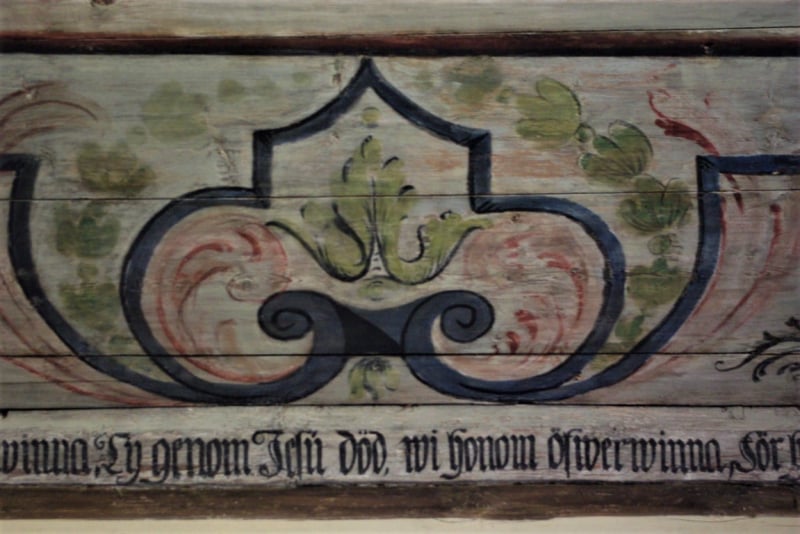 winna, Ty genom Jesu död, wi honom öfwerwinna, För